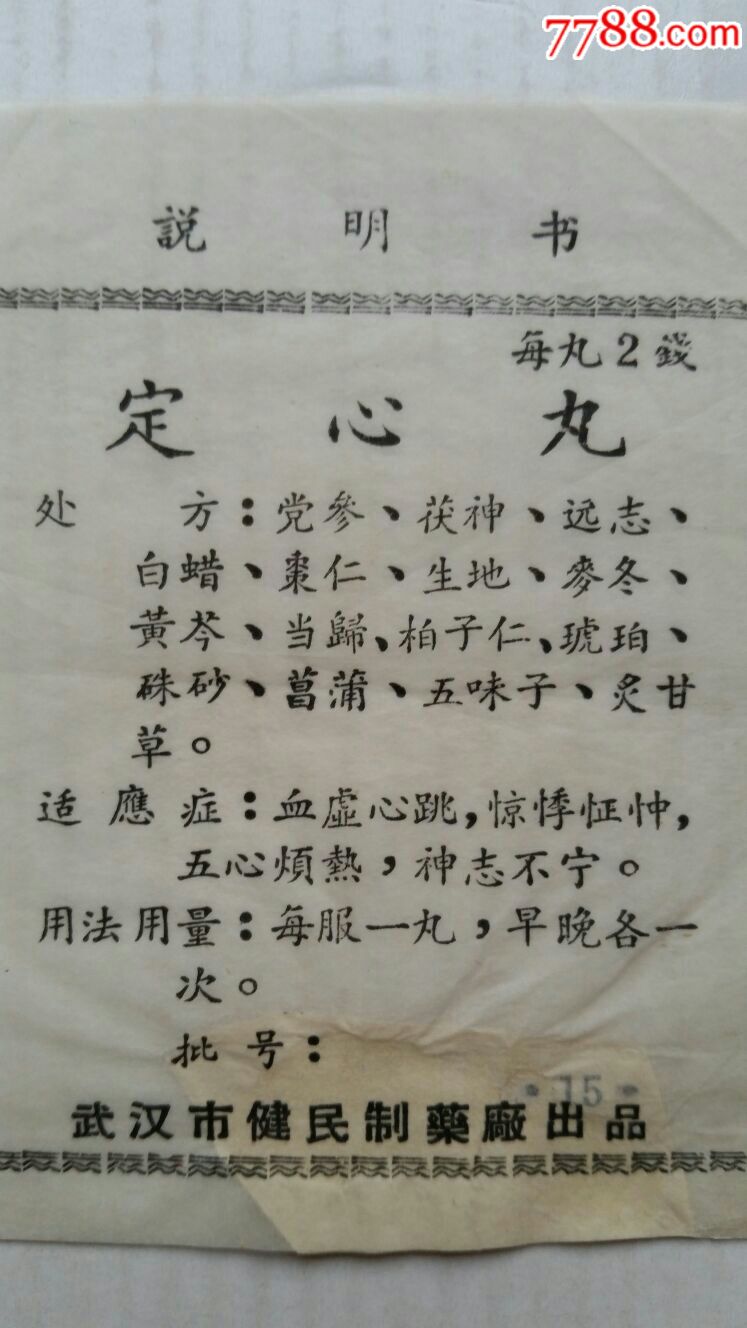 7788.com
説明书
每丸2錢
定心丸
处方：党參、茯神、远志、
白蜡、棗仁、生地、麥冬、
黃芩、当歸、柏子仁、琥珀、
硃砂、菖蒲、五味子、炙甘
草。
适應症：血虛心跳，惊悸怔忡，
五心煩熱，神志不宁。
用法用量：每服一丸，早晚各一
次。
批号：
·15·
武汉市健民制藥廠出品